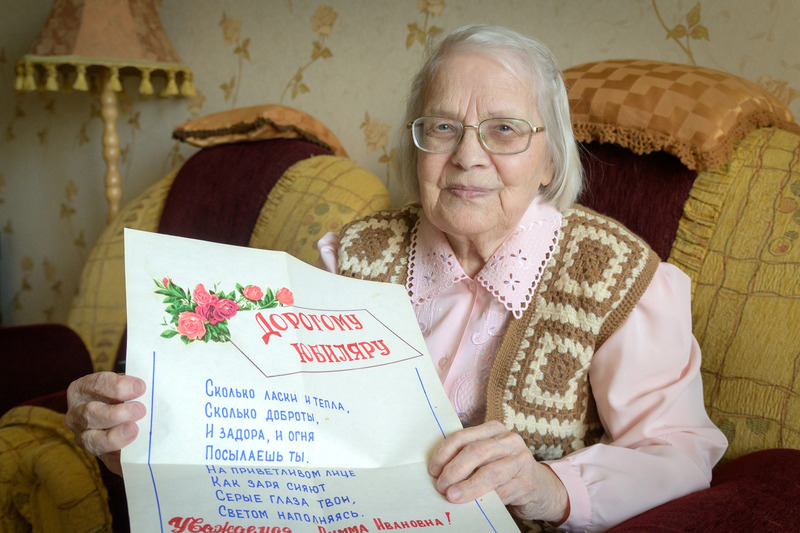 Дорогому
юбиляру
Сколько ласки и тепла,
Сколько доброты,
И задора, и огня
Посылаешь ты.
На приветливом лице
Как заря сияют
Серые глаза твои,
Светом наполняясь.
Уважаемая Римма Ивановна!